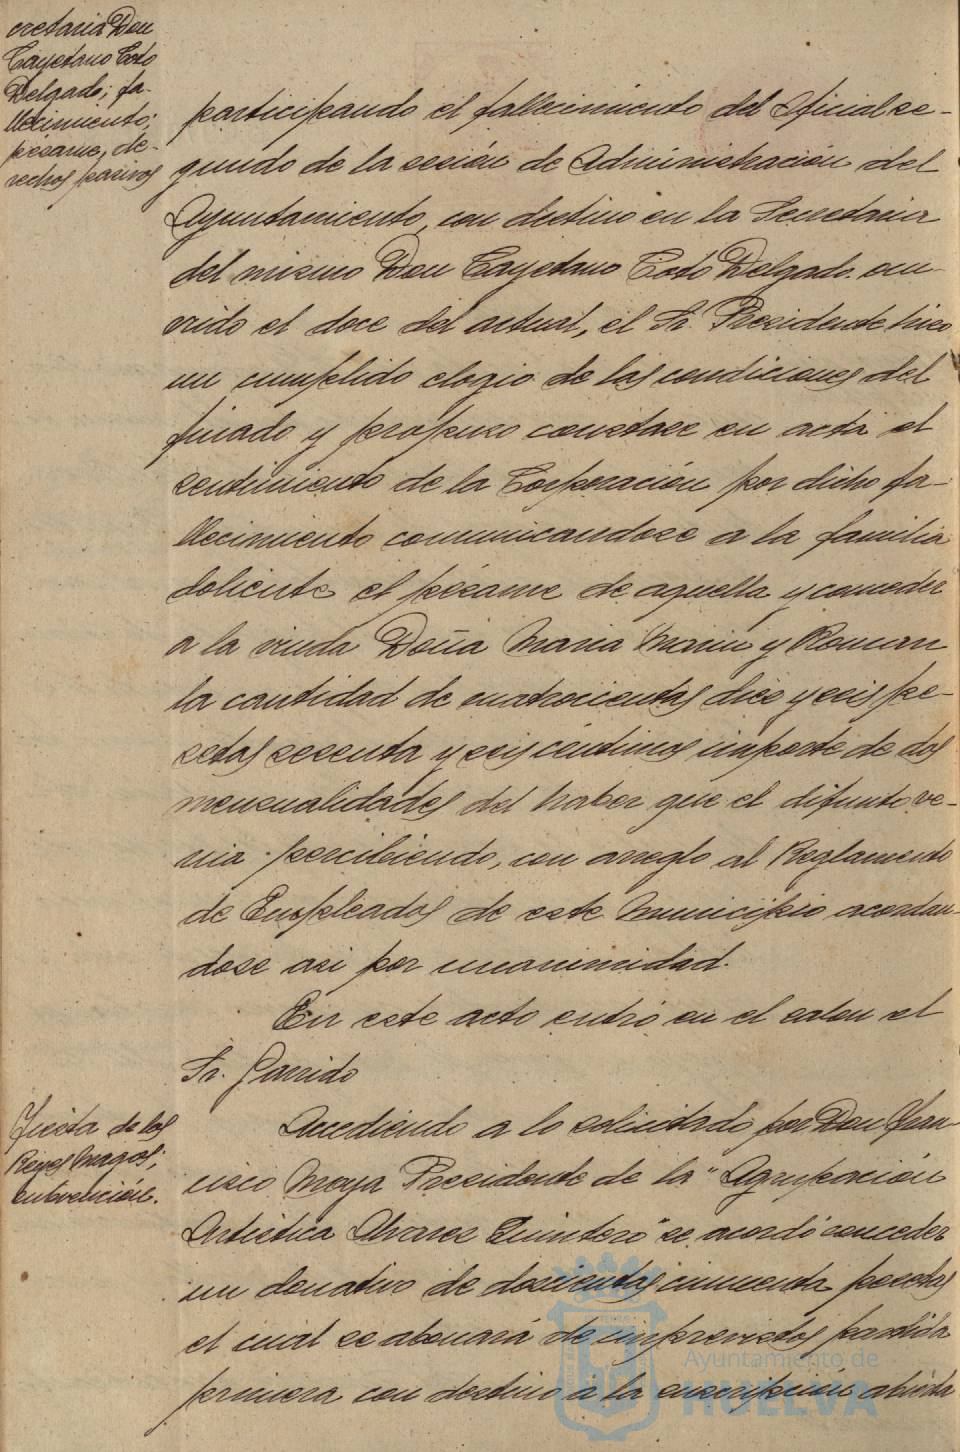 cretaria Don
Cayetano Coto
Delgado; fa-
llecimiento;
pésame, de-
rechos pasivos
participando el fallecimiento del Oficial se-
gundo de la sesión de Administración del
Ayuntamiento, con destino en la Secretaria
del mismo Don Cayetano Coto Delgado ocu-
rrido el doce del actual, el Sr. Presidente hizo
un cumplido elogio de las condiciones del
finado y propuso constase en acta el
sentimiento de la Corporación por dicho fa-
llecimiento comunicandose a la familia
doliente el pésame de aquella y conceder
a la viuda Doña Maria Marin y Roman
la cantidad de cuatrocientas diez y seis pe-
setas sesenta y seis centimos importe de dos
mensualidades del haber que el difunto ve-
nia percibiendo, con arreglo al Reglamento
de Empleados de este Municipio acordan-
dose asi por unanimidad.
En este acto entró en el salon el
Sr. Garrido
Fiesta de los
Reyes Magos;
subvención.
Accediendo a lo solicitado por Don Fran-
cisco Moya Presidente de la "Agrupación
Artistica Alvarez Quintero" se acordó conceder
un donativo de doscientas cincuenta pesetas
el cual se abonará de imprevistos partida
primera con destino a la suscripción abierta
Ayuntamiento de
HUELVA